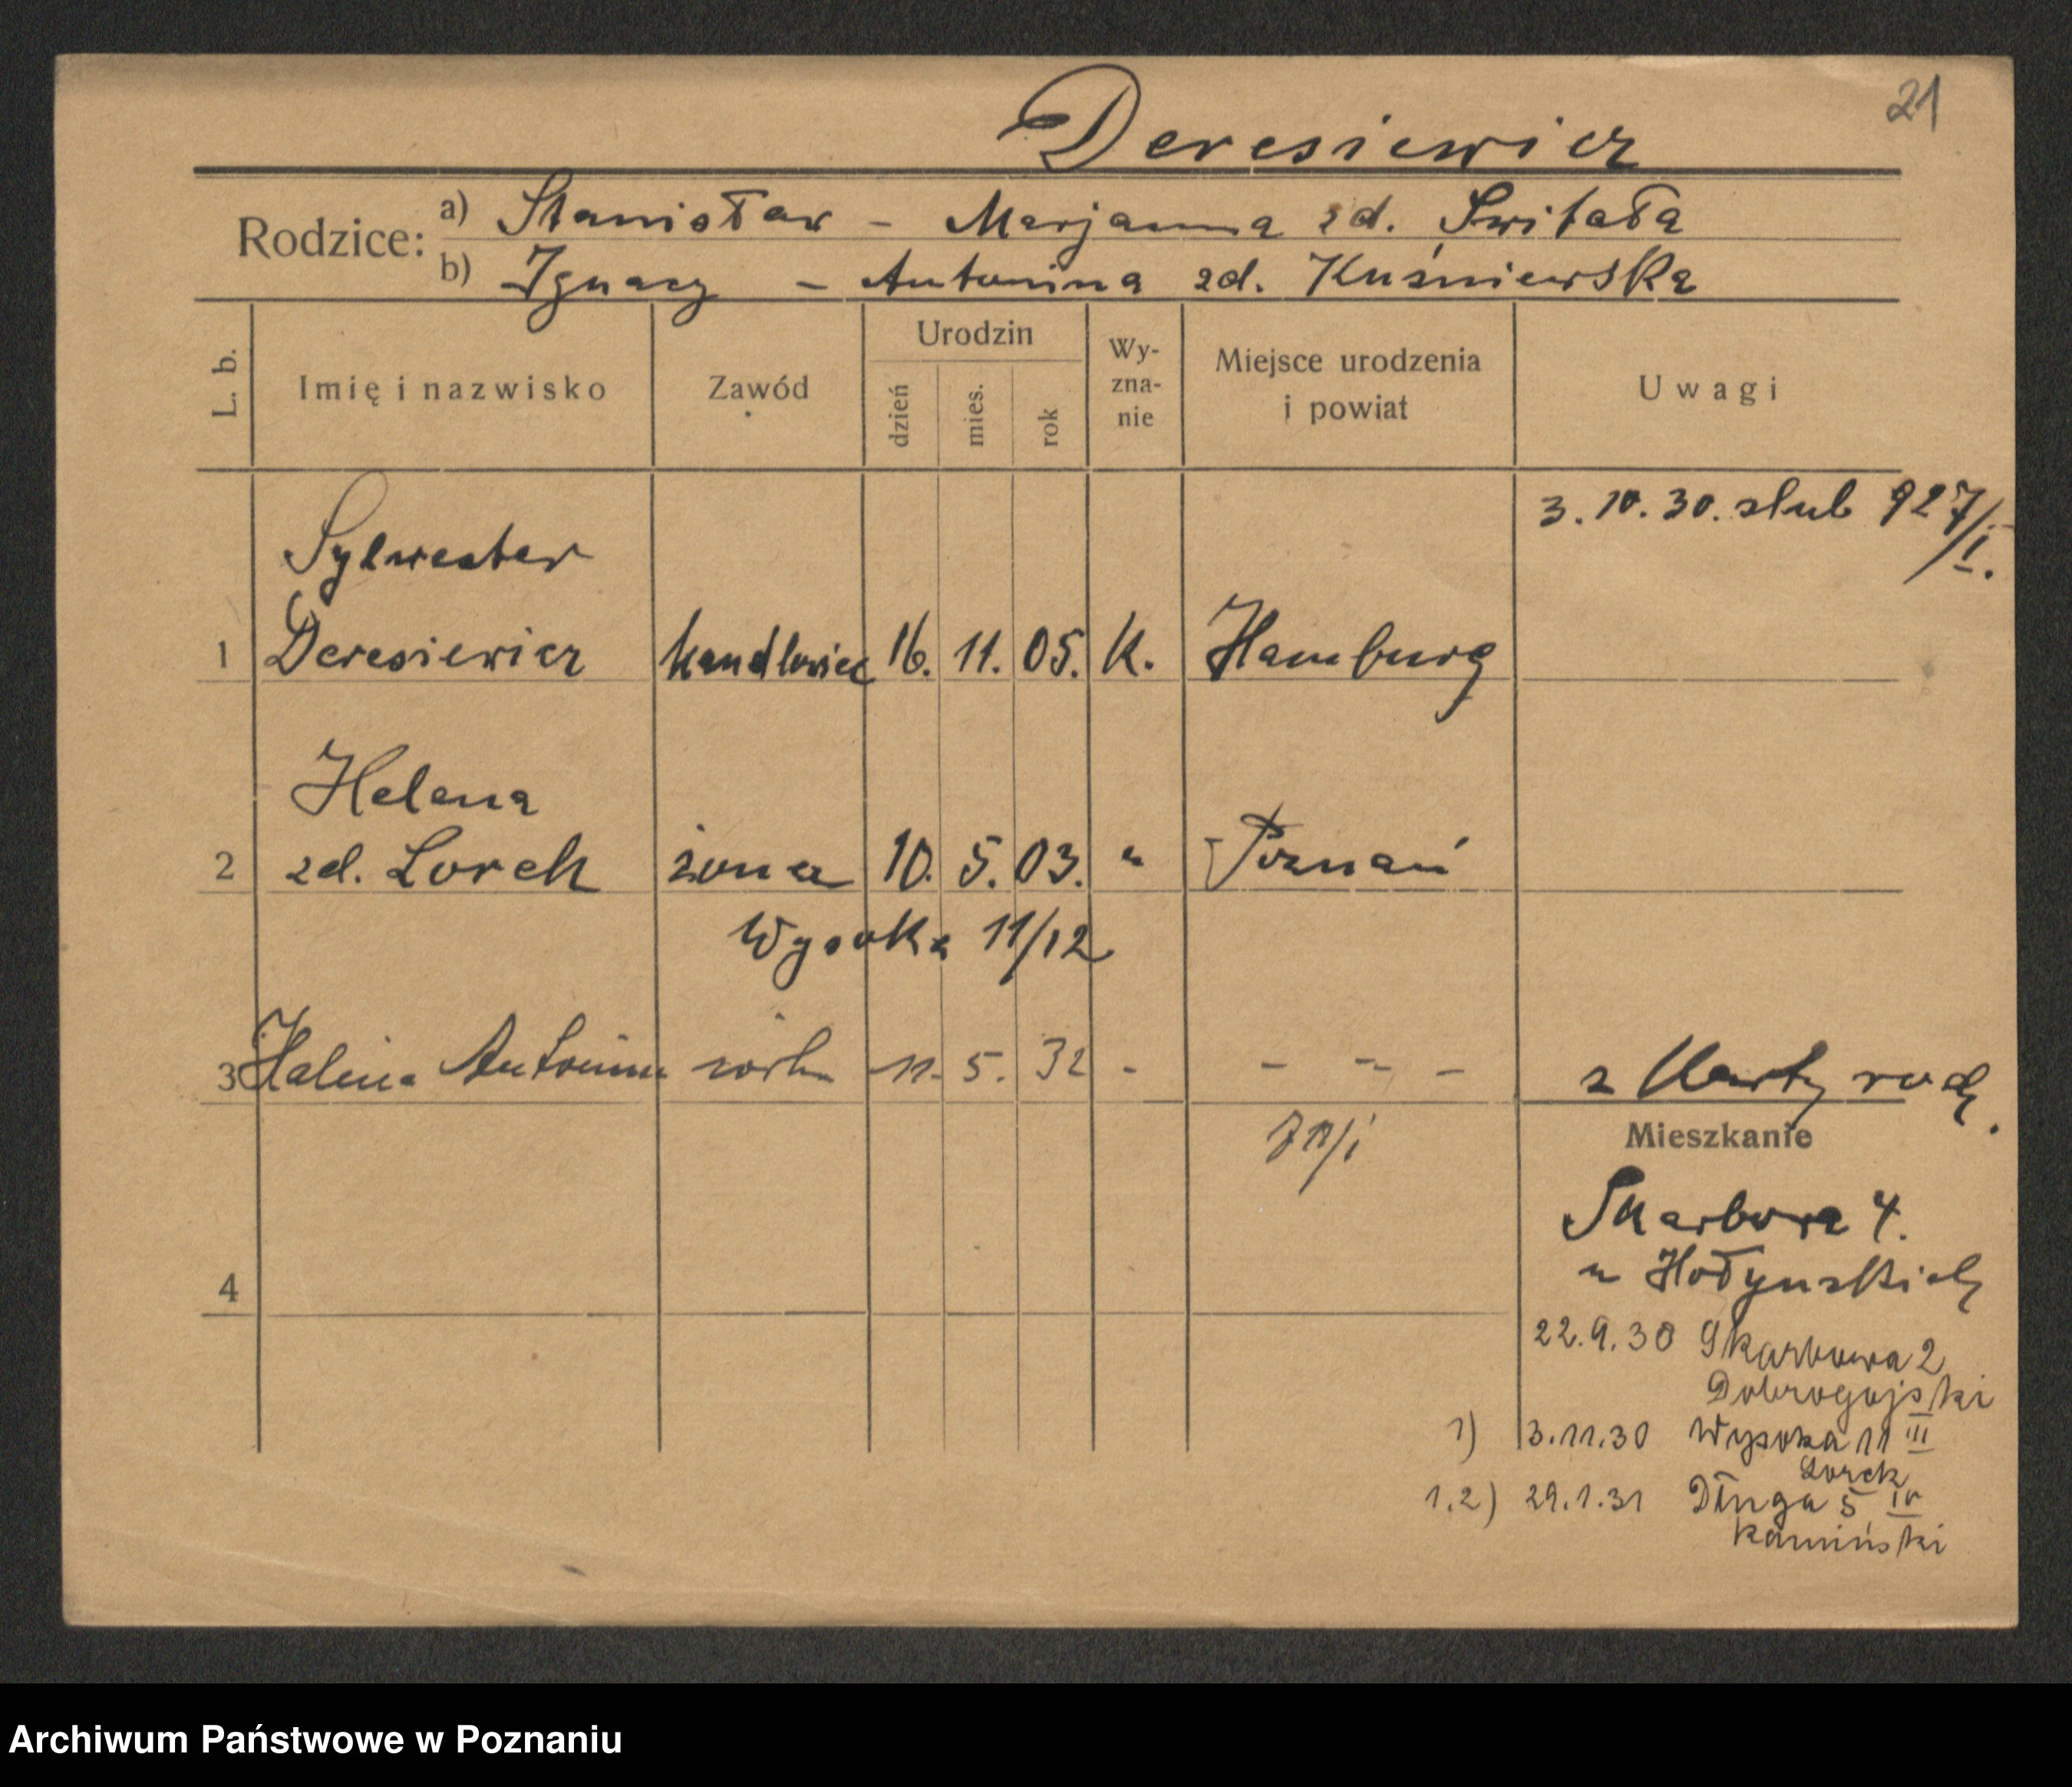 21
Deresiewicz
Rodzice: a) Stanisław - Marjanna zd. Świtała
b) Ignacy - Antonina zd. Kuśniewska
L. b. Imię i nazwisko Zawód Urodzin dzień mies. rok Wy-zna-nie Miejsce urodzenia i powiat Uwagi
3.10.30. slub 927/I.
Sylwester
1 Deresiewicz handlowiec 16. 11. 05. K. Hamburg
Helena
2 zd. Lorek żona 10. 5. 03. " Poznań
Wysoka 11/12
3 Halina Antonina córka 11. 5. 32 - - - - z Karty rodz.
Mieszkanie
Skarbowa 4.
u Hołyńskich
4
22.9.30 Skarbowa 2
Dobrogojski
1) 3.11.30 Wysoka 11 III
Lorek
1.2) 29.1.31 Długa 5 IV
Kamiński
Archiwum Państwowe w Poznaniu